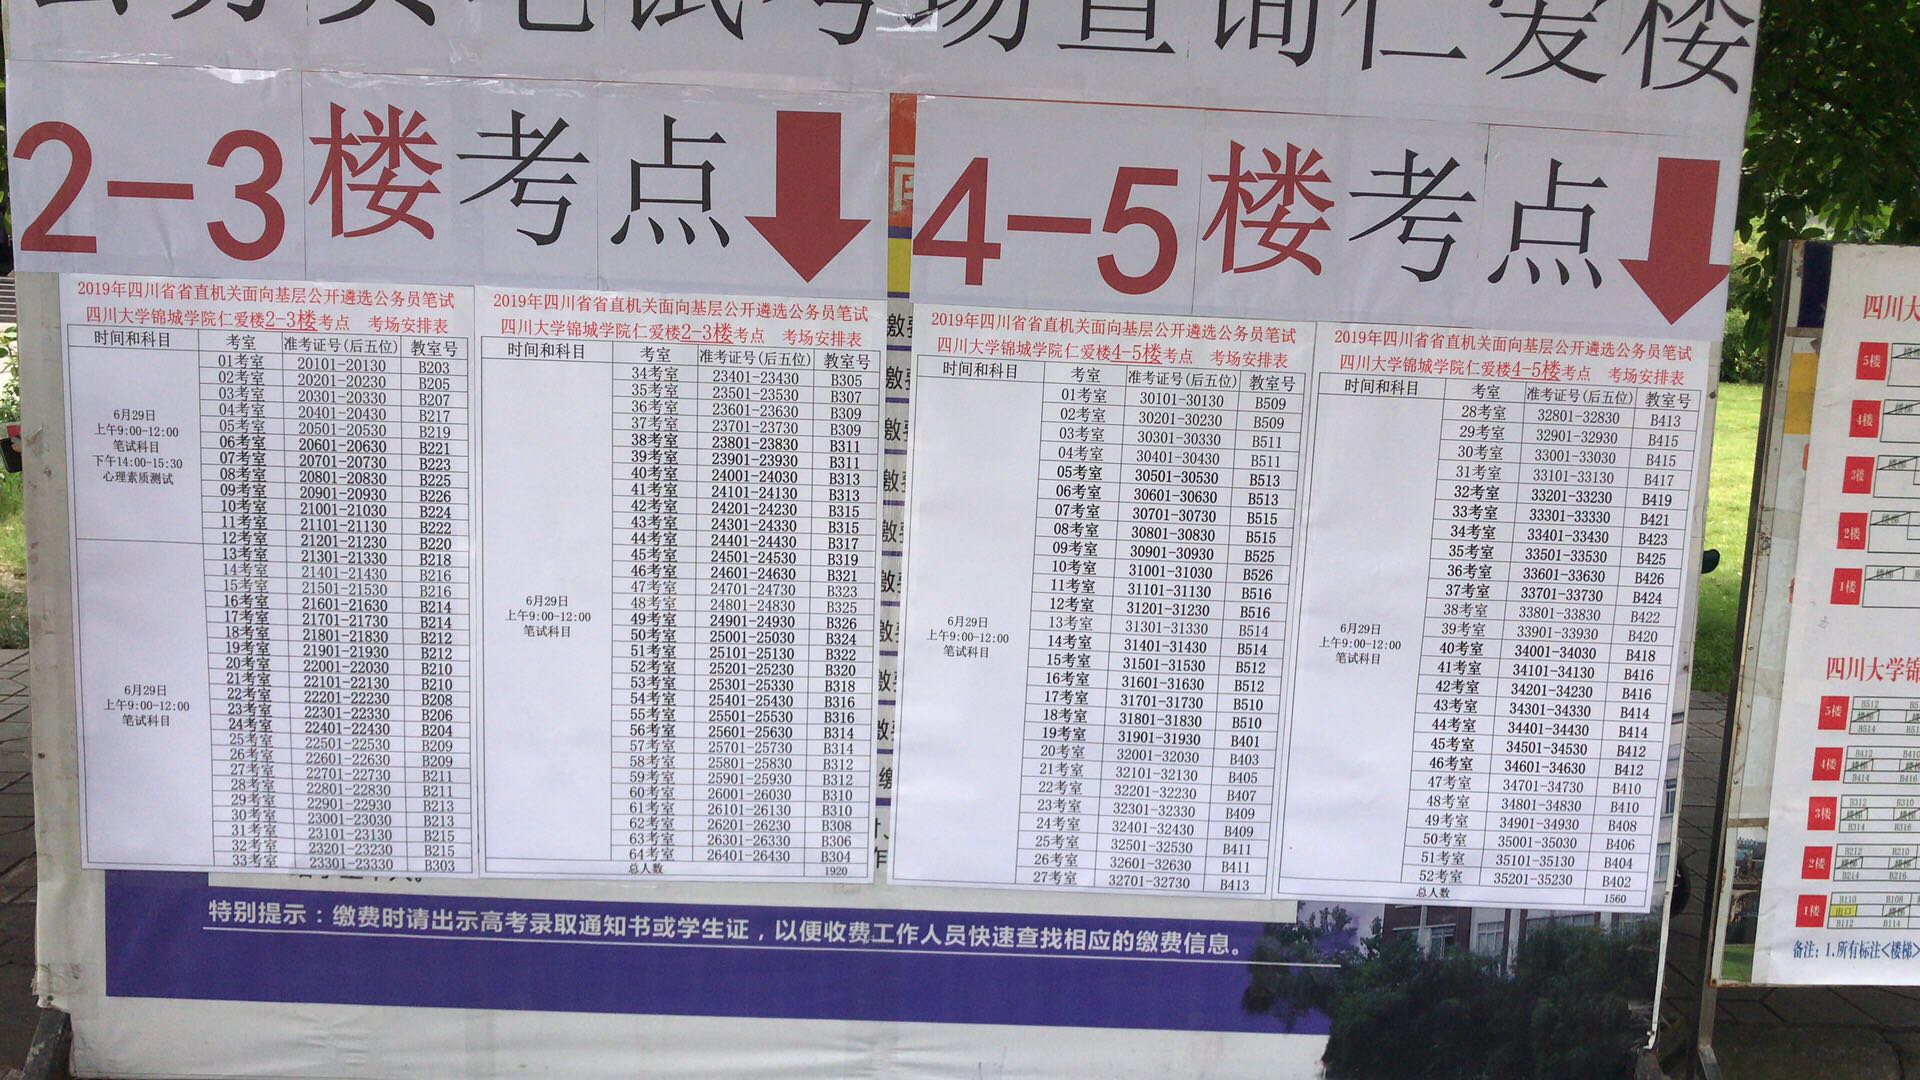 公务员笔试考场查询仁爱楼
2-3楼考点
2019年四川省省直机关面向基层公开遴选公务员笔试
四川大学锦城学院仁爱楼2-3楼考点 考场安排表
时间和科目 考室 准考证号(后五位) 教室号
6月29日
上午9:00-12:00
笔试科目
下午14:00-15:30
心理素质测试
01考室 20101-20130 B203
02考室 20201-20230 B205
03考室 20301-20330 B207
04考室 20401-20430 B217
05考室 20501-20530 B219
06考室 20601-20630 B221
07考室 20701-20730 B223
08考室 20801-20830 B225
09考室 20901-20930 B226
10考室 21001-21030 B224
11考室 21101-21130 B222
12考室 21201-21230 B220
6月29日
上午9:00-12:00
笔试科目
13考室 21301-21330 B218
14考室 21401-21430 B216
15考室 21501-21530 B216
16考室 21601-21630 B214
17考室 21701-21730 B214
18考室 21801-21830 B212
19考室 21901-21930 B212
20考室 22001-22030 B210
21考室 22101-22130 B210
22考室 22201-22230 B208
23考室 22301-22330 B206
24考室 22401-22430 B204
25考室 22501-22530 B209
26考室 22601-22630 B209
27考室 22701-22730 B211
28考室 22801-22830 B211
29考室 22901-22930 B213
30考室 23001-23030 B213
31考室 23101-23130 B215
32考室 23201-23230 B215
33考室 23301-23330 B303
2019年四川省省直机关面向基层公开遴选公务员笔试
四川大学锦城学院仁爱楼2-3楼考点 考场安排表
时间和科目 考室 准考证号(后五位) 教室号
6月29日
上午9:00-12:00
笔试科目
34考室 23401-23430 B305
35考室 23501-23530 B307
36考室 23601-23630 B309
37考室 23701-23730 B309
38考室 23801-23830 B311
39考室 23901-23930 B311
40考室 24001-24030 B313
41考室 24101-24130 B313
42考室 24201-24230 B315
43考室 24301-24330 B315
44考室 24401-24430 B317
45考室 24501-24530 B319
46考室 24601-24630 B321
47考室 24701-24730 B323
48考室 24801-24830 B325
49考室 24901-24930 B326
50考室 25001-25030 B324
51考室 25101-25130 B322
52考室 25201-25230 B320
53考室 25301-25330 B318
54考室 25401-25430 B316
55考室 25501-25530 B316
56考室 25601-25630 B314
57考室 25701-25730 B314
58考室 25801-25830 B312
59考室 25901-25930 B312
60考室 26001-26030 B310
61考室 26101-26130 B310
62考室 26201-26230 B308
63考室 26301-26330 B306
64考室 26401-26430 B304
总人数 1920
4-5楼考点
2019年四川省省直机关面向基层公开遴选公务员笔试
四川大学锦城学院仁爱楼4-5楼考点 考场安排表
时间和科目 考室 准考证号(后五位) 教室号
6月29日
上午9:00-12:00
笔试科目
01考室 30101-30130 B509
02考室 30201-30230 B509
03考室 30301-30330 B511
04考室 30401-30430 B511
05考室 30501-30530 B513
06考室 30601-30630 B513
07考室 30701-30730 B515
08考室 30801-30830 B515
09考室 30901-30930 B525
10考室 31001-31030 B526
11考室 31101-31130 B516
12考室 31201-31230 B516
13考室 31301-31330 B514
14考室 31401-31430 B514
15考室 31501-31530 B512
16考室 31601-31630 B512
17考室 31701-31730 B510
18考室 31801-31830 B510
19考室 31901-31930 B401
20考室 32001-32030 B403
21考室 32101-32130 B405
22考室 32201-32230 B407
23考室 32301-32330 B409
24考室 32401-32430 B409
25考室 32501-32530 B411
26考室 32601-32630 B411
27考室 32701-32730 B413
2019年四川省省直机关面向基层公开遴选公务员笔试
四川大学锦城学院仁爱楼4-5楼考点 考场安排表
时间和科目 考室 准考证号(后五位) 教室号
6月29日
上午9:00-12:00
笔试科目
28考室 32801-32830 B413
29考室 32901-32930 B415
30考室 33001-33030 B415
31考室 33101-33130 B417
32考室 33201-33230 B419
33考室 33301-33330 B421
34考室 33401-33430 B423
35考室 33501-33530 B425
36考室 33601-33630 B426
37考室 33701-33730 B424
38考室 33801-33830 B422
39考室 33901-33930 B420
40考室 34001-34030 B418
41考室 34101-34130 B416
42考室 34201-34230 B416
43考室 34301-34330 B414
44考室 34401-34430 B414
45考室 34501-34530 B412
46考室 34601-34630 B412
47考室 34701-34730 B410
48考室 34801-34830 B410
49考室 34901-34930 B408
50考室 35001-35030 B406
51考室 35101-35130 B404
52考室 35201-35230 B402
总人数 1560
特别提示：缴费时请出示高考录取通知书或学生证，以便收费工作人员快速查找相应的缴费信息。
四川大
5楼
4楼
3楼
2楼
1楼
四川大学锦
5楼 B512
B514
4楼 B412 B410
B414 B416
3楼 B312 B310
B314 B316
2楼 B212 B210
B214 B216
1楼 B110 B108
出口
B112 B114
备注：1.所有标注<楼梯>